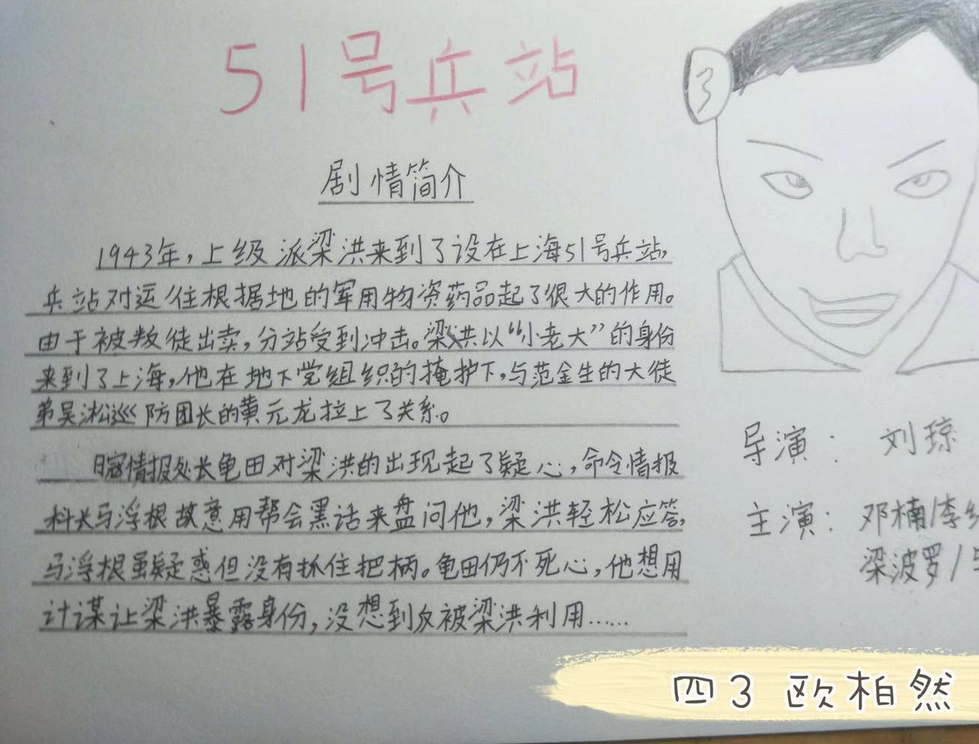 51号兵站
3
剧情简介
1943年，上级派梁洪来到了设在上海51号兵站，
兵站对运往根据地的军用物资药品起了很大的作用。
由于被叛徒出卖，分站受到冲击。梁洪以“小老大”的身份
来到了上海，他在地下党组织的掩护下，与范金生的大徒
弟吴淞巡防团长的黄元龙拉上了关系。
情报处长龟田对梁洪的出现起了疑心，命令情报
科长马浮根故意用帮会黑话来盘问他，梁洪轻松应答，
马浮根虽疑惑但没有抓住把柄。龟田仍不死心，他想用
计谋让梁洪暴露身份，没想到反被梁洪利用……
导演： 刘琼
主演： 邓楠/李
梁波罗/
四3 欧柏然